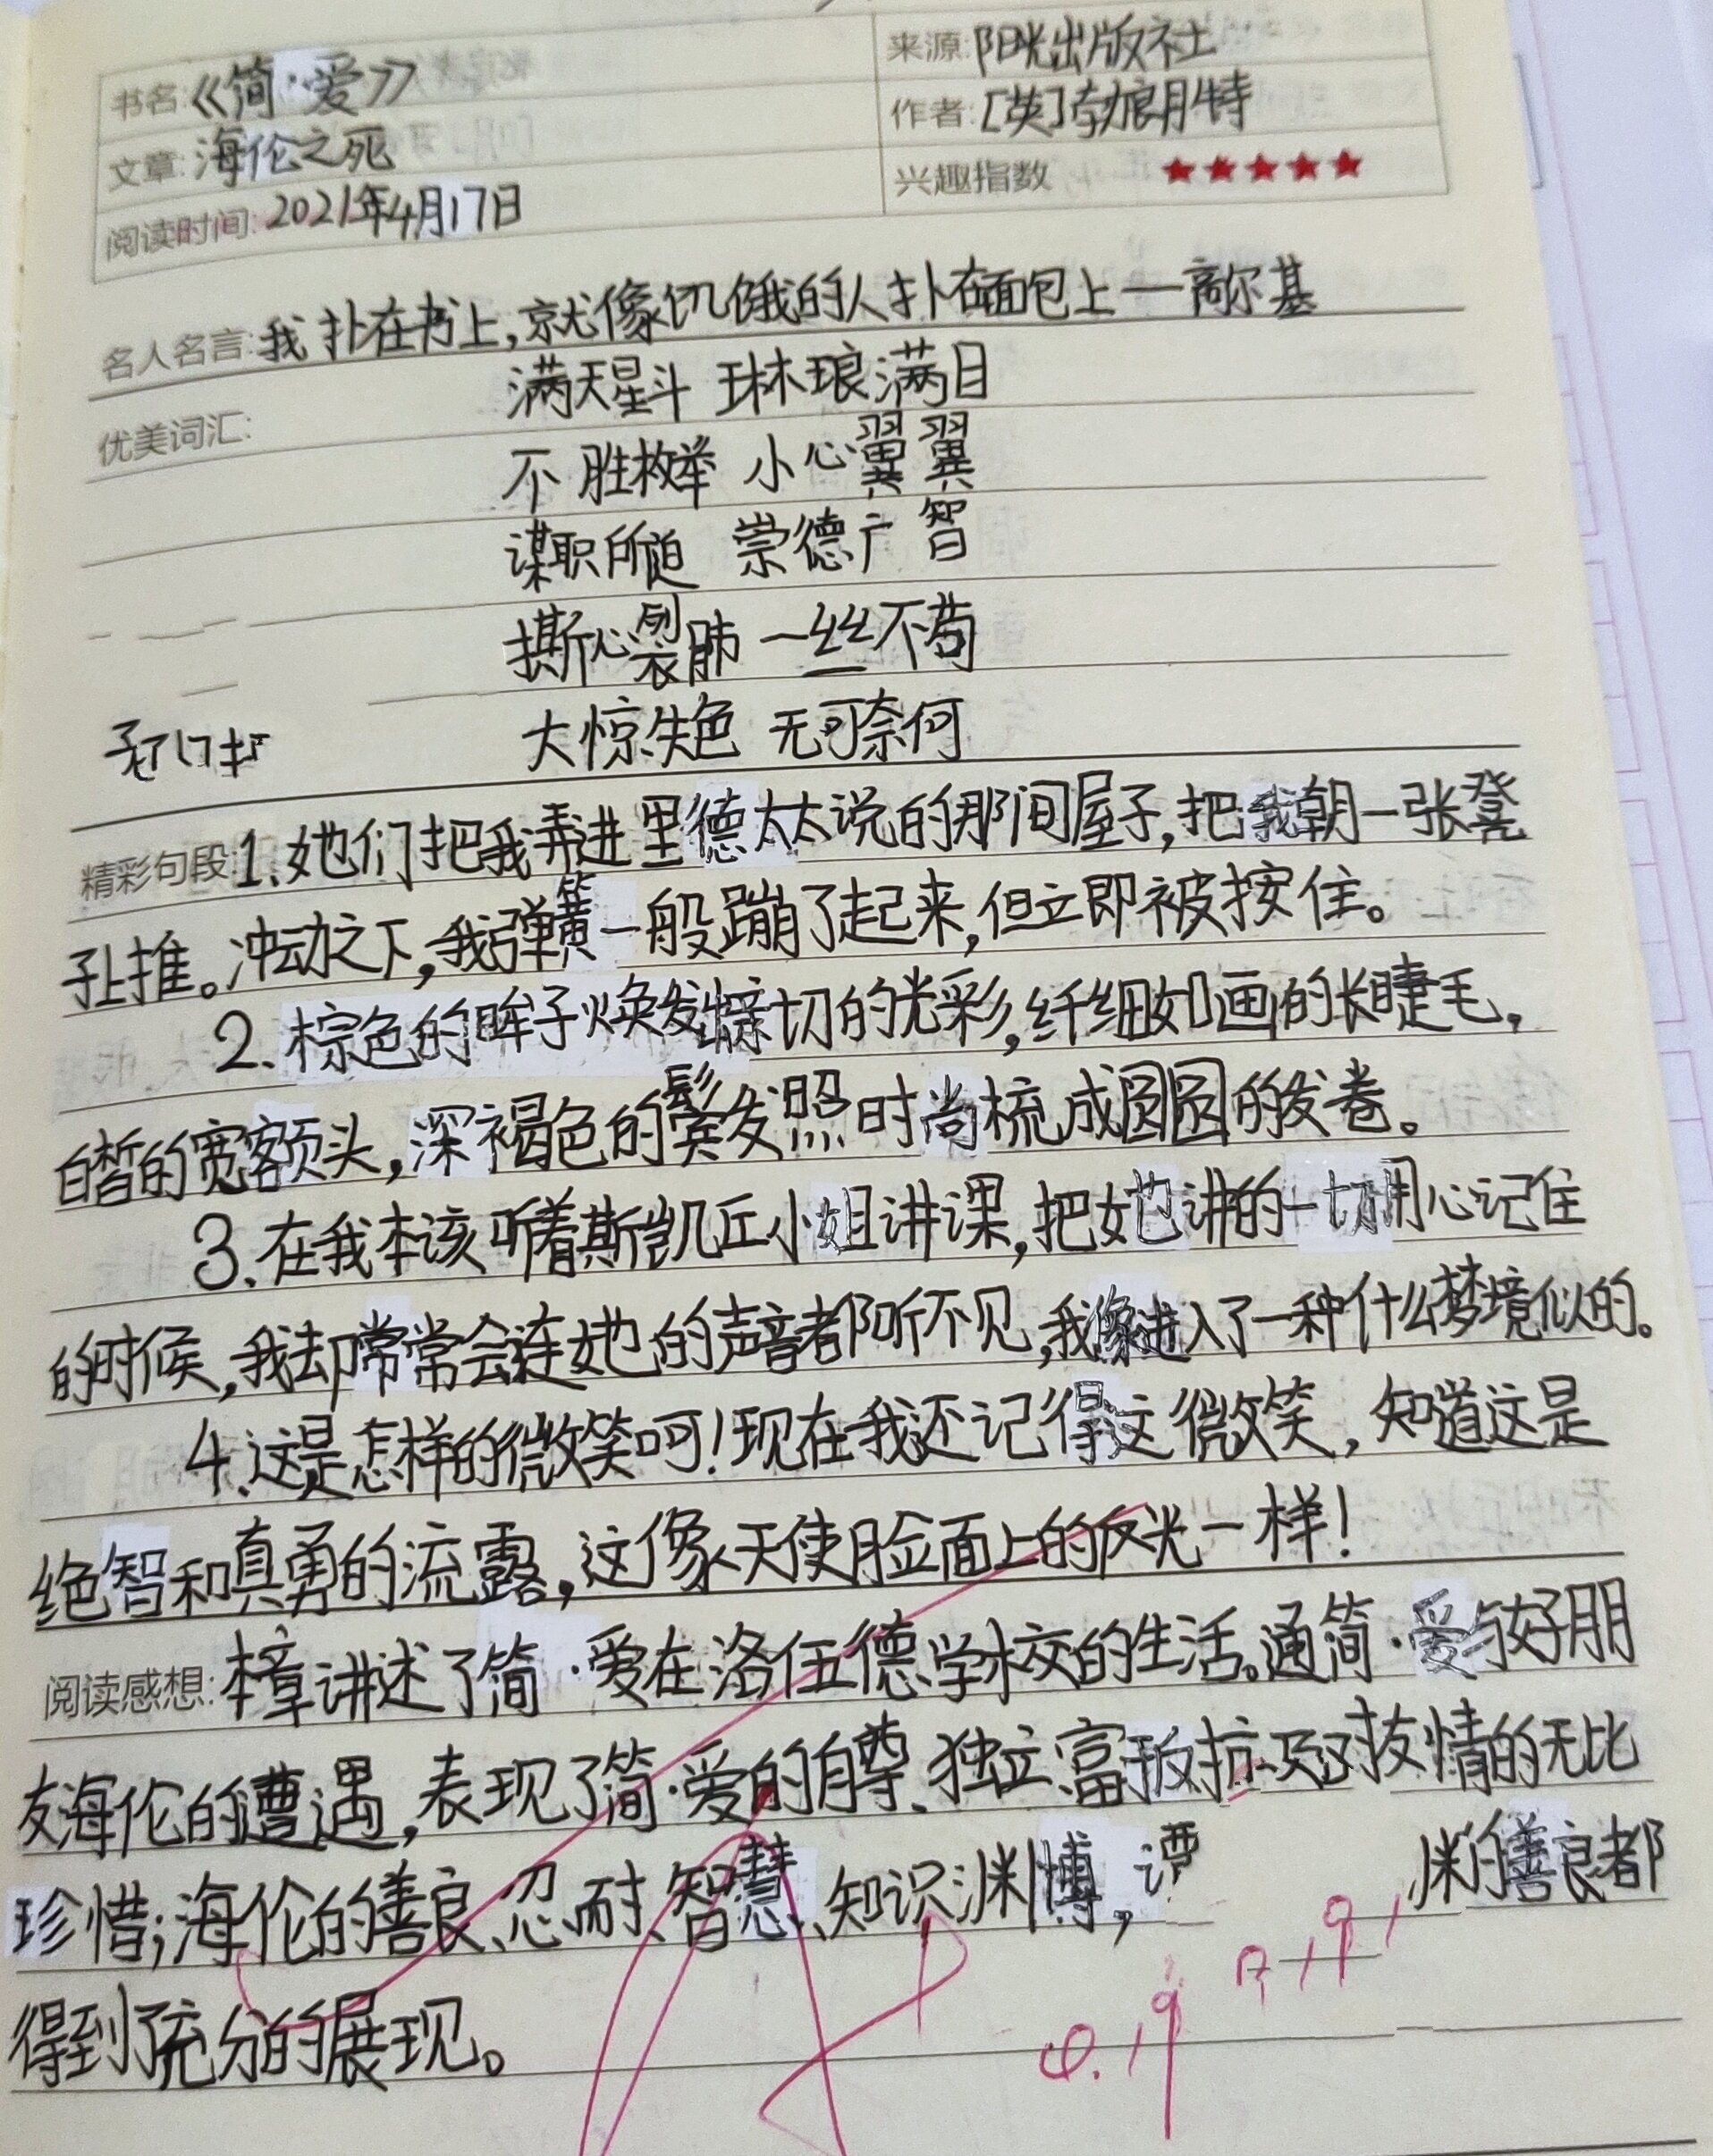 书名:《简·爱》
来源:阳光出版社
作者:[英]勃朗特
文章:海伦之死
兴趣指数 ★★★★★
阅读时间:2021年4月17日
名人名言:我扑在书上,就像饥饿的人扑在面包上——高尔基
优美词汇:
满天星斗 琳琅满目
不胜枚举 小心翼翼
谋职所迫 崇德广智
撕心裂肺 一丝不苟
大惊失色 无可奈何
精彩句段:1.她们把我弄进里德太太说的那间屋子,把我朝一张凳
子上推。冲动之下,我弹簧一般蹦了起来,但立即被按住。
2.棕色的眸子焕发亲切的光彩,纤细如画的长睫毛,
白皙的宽额头,深褐色的鬓发照时尚梳成圆圆的发卷。
3.在我本该听着斯凯丘小姐讲课,把她讲的一切用心记住
的时候,我却常常会连她的声音都听不见,我像进入了一种什么梦境似的。
4.这是怎样的微笑呵!现在我还记得这微笑,知道这是
绝智和真勇的流露,这像天使脸面上的反光一样!
阅读感想:本章讲述了简·爱在洛伍德学校的生活。通简·爱与好朋
友海伦的遭遇,表现了简·爱的自尊、独立、富反抗及对友情的无比
珍惜;海伦的善良、忍耐、智慧、知识渊博,谭 善良都
得到了充分的展现。